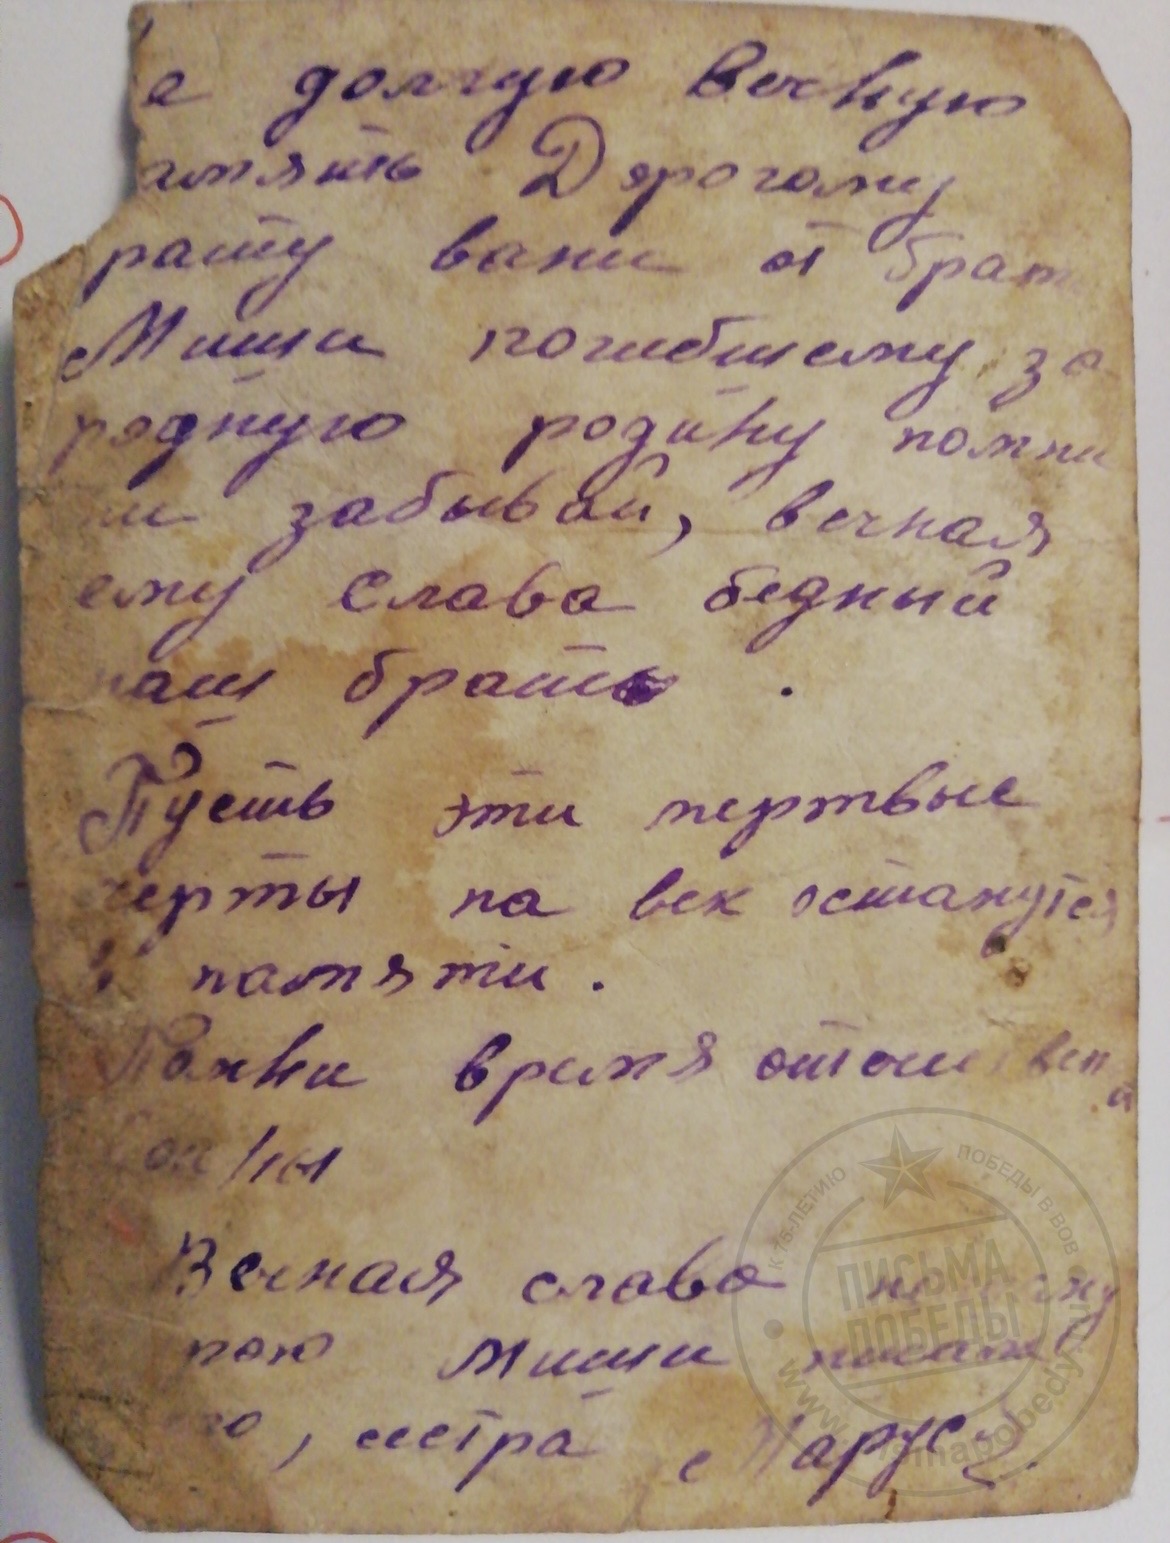 е долгую вечную
амять Дорогому
рату вани от брат
Миши погибшему за
родную родину помни
ни забывай, вечная
ему слава бедный
наш брать .
Пусть эти мертвые
черты на век останутся
в памяти .
Помни время отечествен
ны
Вечная слава
Миши
, сестра Маруся.
К 75-ЛЕТИЮ ПОБЕДЫ В ВОВ
ПИСЬМА
ПОБЕДЫ